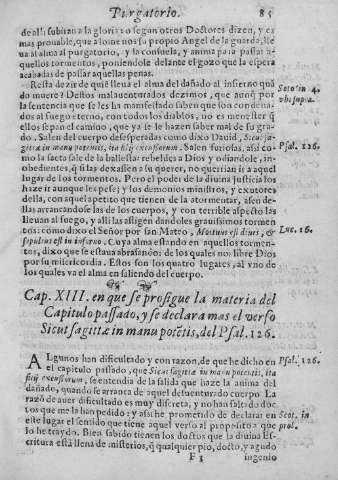 Purgatorio. 85
de allí subiran a la gloria: o segun otros Doctores dizen, y es
mas prouable, que a some nos su propio Angel de la guarda, lle
ua al alma al purgatorio, y la consuela, y anima para passar a-
quellos tormentos, poniendole delante el gozo que la espera
acabadas de passar aquellas penas.
Resta dezir de què llena el alma del dañado al infierno quã
do muere? Destos malauenturados dezimos, que aunq̃ por
la sentencia que se les ha manifestado saben que son condena-
dos al fuego eterno, con todos los diablos, no es menester q̃
ellos sepan el camino, que ya se le hazen saber mal de su gra-
do. Salen del cuerpo desesperadas como dixo Dauid, Sicut sa-
gittæ in manu potentis, ita filij excussorum. Salen furiosas, así co-
mo la saeta sale de la ballesta: rebeldes a Dios y odiandole, in-
obedientes, q̃ si las dexassen a su querer, no querrian ir a aquel
lugar de los tormentos. Pero el poder de la diuina justicia los
haze ir aunque les pese; y los demonios ministros, y exutores
della, con aquel apetito que tienen de la atormentar, asen de-
llas arrancandose las de los cuerpos, y con terrible aspecto las
lleuan al fuego, y alli las afligen dandoles grauissimos tormen-
tos: como dixo el Señor por san Mateo, Mortuus est diues, &
sepultus est in inferno. Cuya alma estando en aquellos tormen-
tos, dixo que se estaua abrasando: de los quales no libre Dios
por su misericordia. Estos son los quatro lugares, al vno de
los quales va el alma en saliendo del cuerpo.
Soto in 4.
vbi supra.
Psal. 126.
Luc. 16.
Cap. XIII. en que se prosigue la materia del
Capitulo passado, y se declara mas el verso
Sicut sagittæ in manu potẽtis, del Psal. 126.
ALgunos han dificultado y con razon, de que he dicho en
el capitulo passado, que Sicut sagittæ in manu potentis, ita
filij excussorum, se entendia de la salida que haze la anima del
dañado, quando se arranca de aquel desuenturado cuerpo. La
razõ de auer dificultado es muy discreta, y no han sido doc
tos que me la han pedido: y assi he prometido de declarar en
este lugar el sentido que tiene aquel verso al proposito a que
lo he traydo. Bien sabido tienen los doctos que la diuina Es-
critura està llena de misterios, q̃ qualquier pio, docto, y agudo
Psal. 126.
Scot. in
prol.
F 5 ingenio